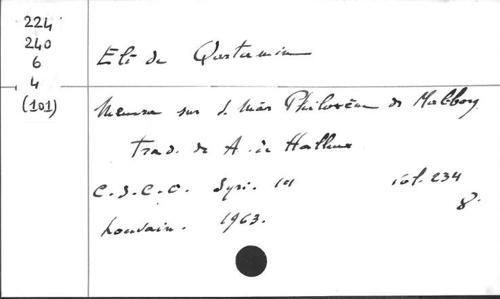 224
240
6
4
(101)
Eli de Qartamin
Memra sur S. Mâr Philoxène de Mabbog
trad. de A. de Halleux
C.S.C.O. Syri. 101 vol. 234
8.
Louvain. 1963.